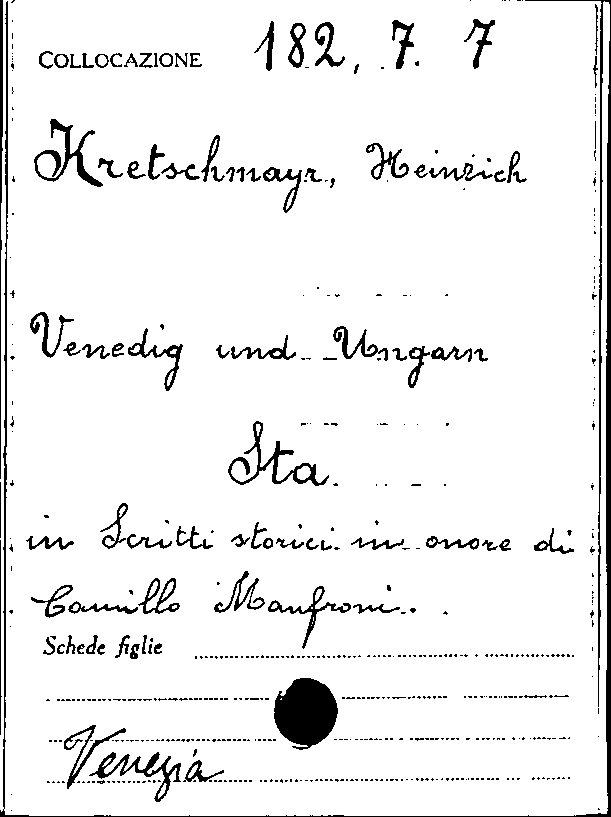 COLLOCAZIONE 182. 7. 7
Kretschmayr, Heinrich
Venedig und Ungarn
Sta.
in Scritti storici in onore di
Camillo Manfroni.
Schede figlie
Venezia